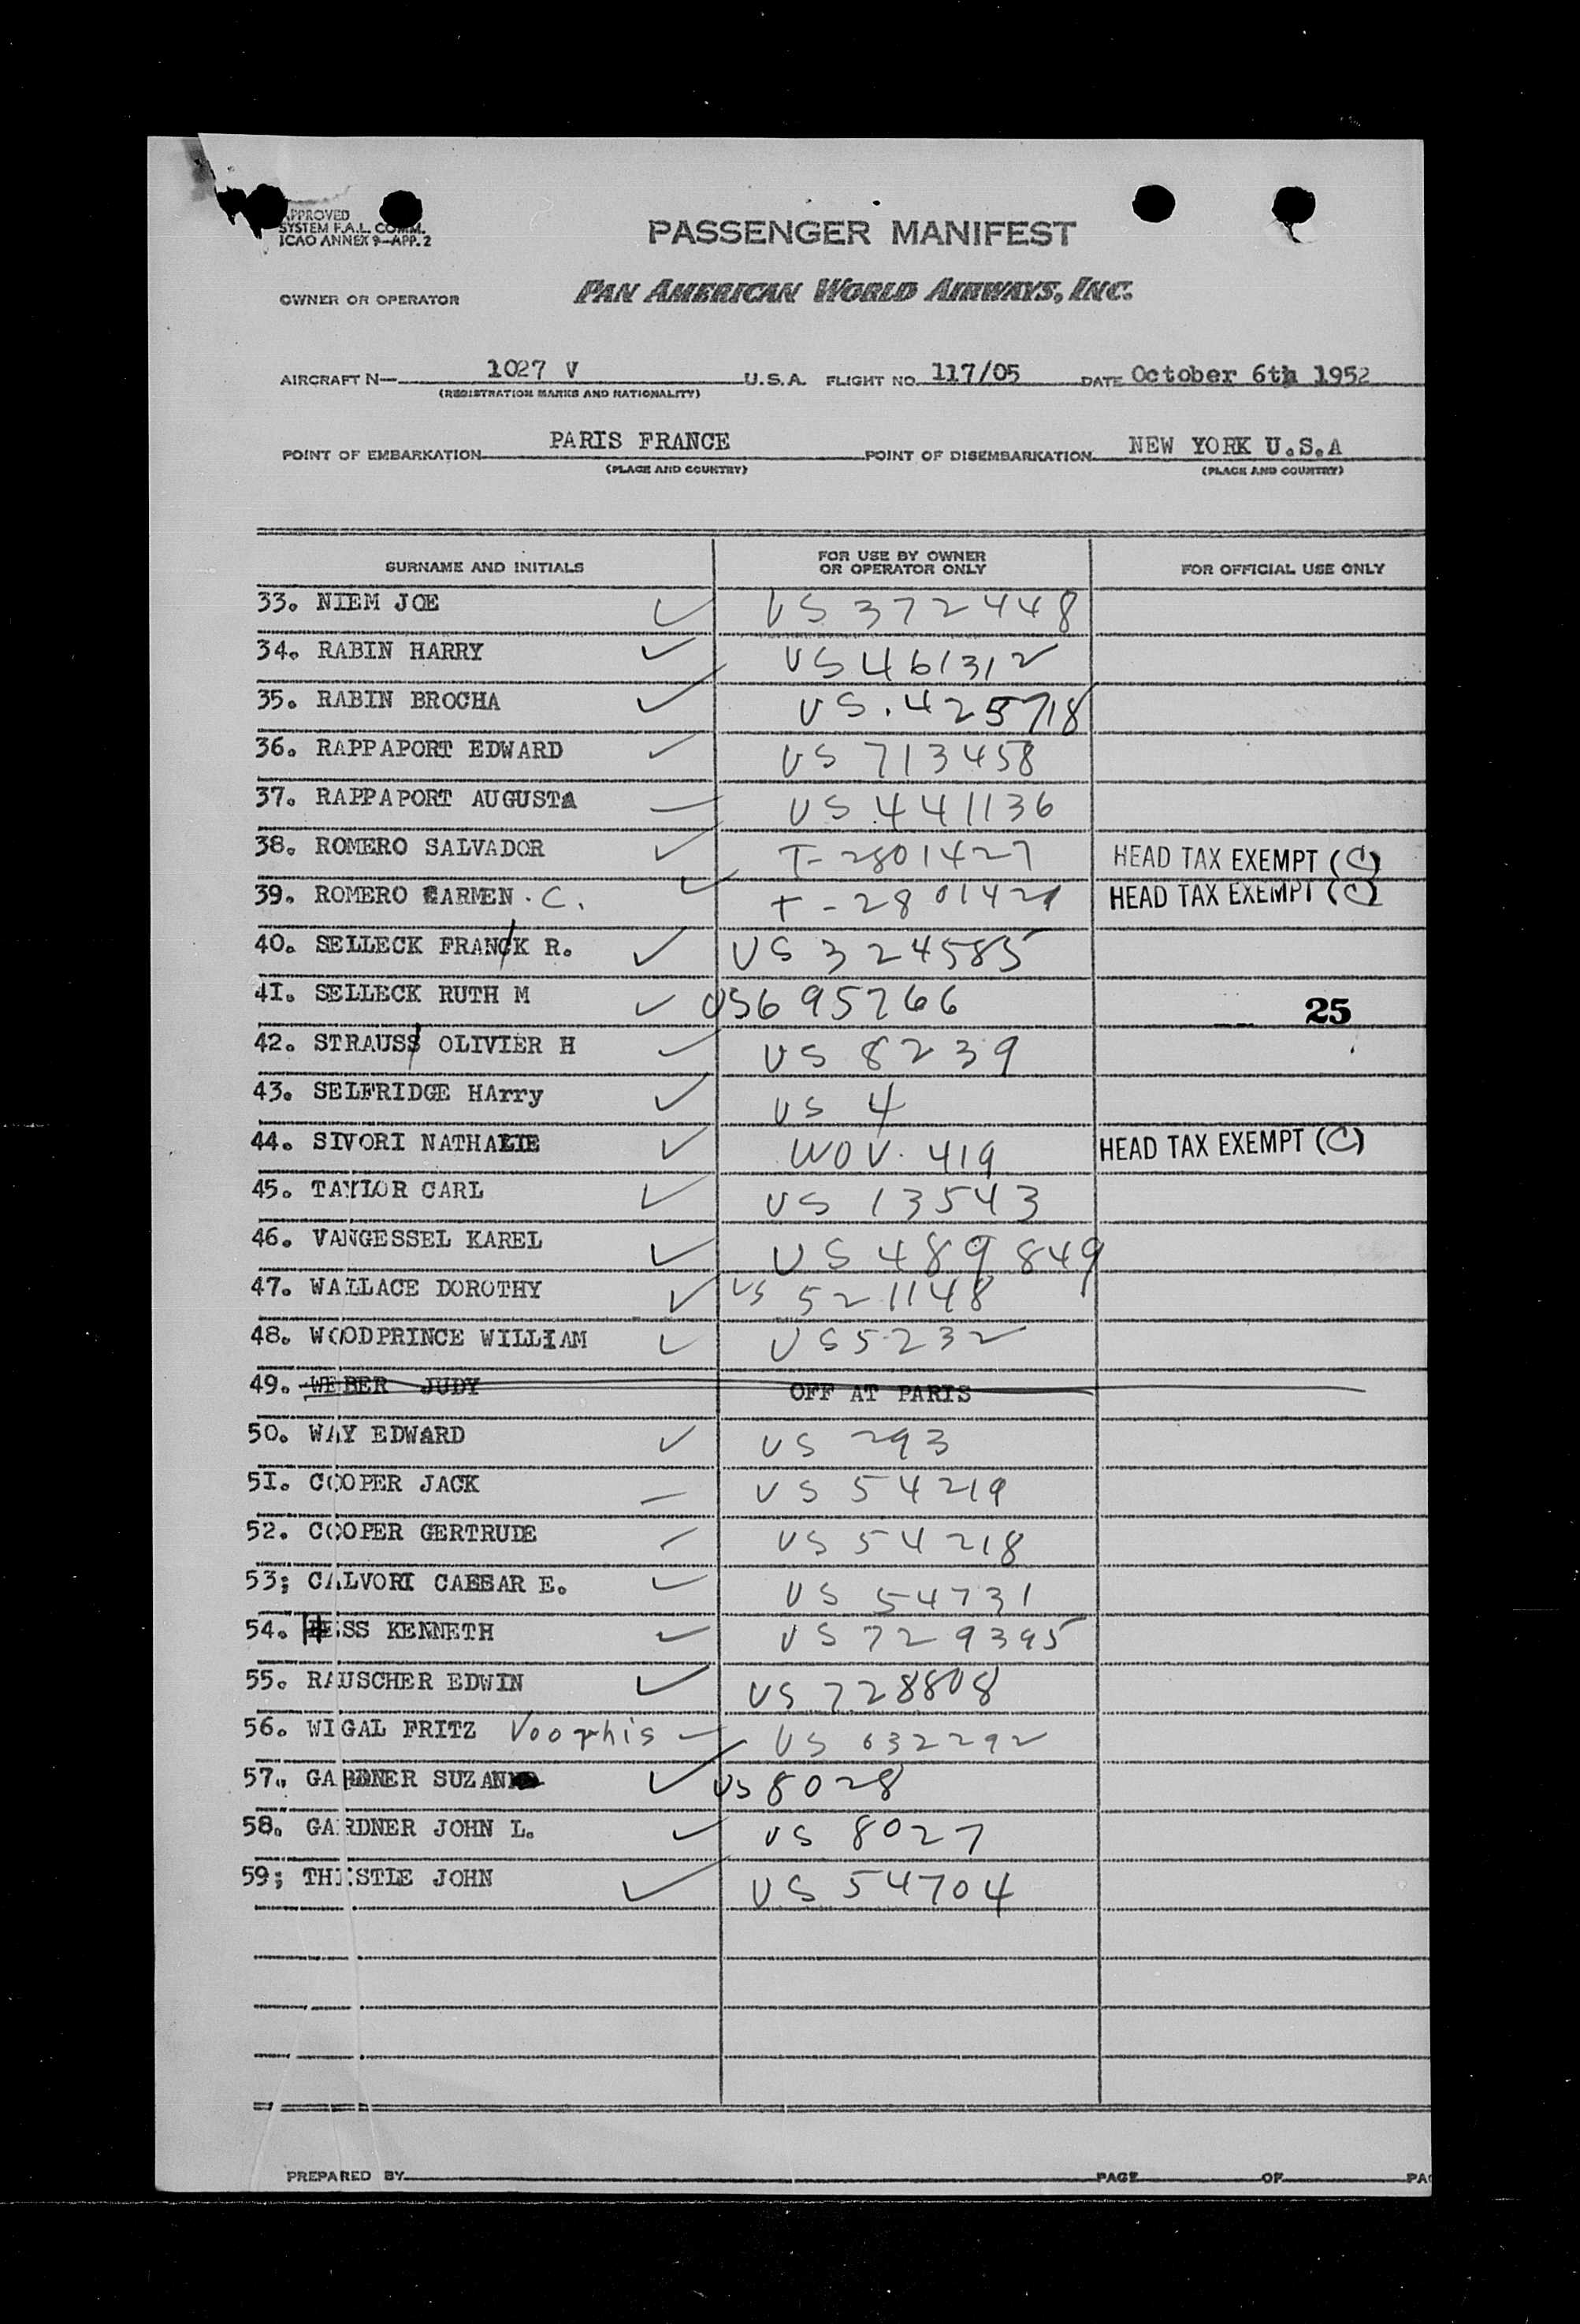 APPROVED
SYSTEM F.A.L. COMM.
ICAO ANNEX 9—APP. 2
PASSENGER MANIFEST
OWNER OR OPERATOR PAN AMERICAN WORLD AIRWAYS, INC.
AIRCRAFT N— 1027 V U.S.A. FLIGHT NO. 117/05 DATE October 6th 1952
(REGISTRATION MARKS AND NATIONALITY)
POINT OF EMBARKATION PARIS FRANCE POINT OF DISEMBARKATION NEW YORK U.S.A
(PLACE AND COUNTRY) (PLACE AND COUNTRY)
SURNAME AND INITIALS FOR USE BY OWNER OR OPERATOR ONLY FOR OFFICIAL USE ONLY
33. NIEM JOE ✓ US 372448
34. RABIN HARRY ✓ US 461312
35. RABIN BROCHA ✓ US. 425718
36. RAPPAPORT EDWARD ✓ US 713458
37. RAPPAPORT AUGUSTA — US 441136
38. ROMERO SALVADOR ✓ T-2801427 HEAD TAX EXEMPT (C)
39. ROMERO CARMEN . C. ✓ T-2801421 HEAD TAX EXEMPT (C)
40. SELLECK FRANCK R. ✓ US 324585
41. SELLECK RUTH M ✓ US695766 25
42. STRAUSS OLIVIER H ✓ US 8239
43. SELFRIDGE HArry ✓ US 4
44. SIVORI NATHALIE ✓ WOV. 419 HEAD TAX EXEMPT (C)
45. TAYLOR CARL ✓ US 13543
46. VANGESSEL KAREL ✓ US 489849
47. WALLACE DOROTHY ✓ US 521148
48. WOODPRINCE WILLIAM ✓ US5232
49. WEBER JUDY OFF AT PARIS
50. WAY EDWARD ✓ US 293
51. COOPER JACK — US 54219
52. COOPER GERTRUDE US 54218
53; CALVORI CAESAR E. ✓ US 54731
54. HESS KENNETH ✓ US 729395
55. RAUSCHER EDWIN ✓ US 728808
56. WIGAL FRITZ Voorhis US 632292
57. GARDNER SUZAN ✓ US 8028
58. GARDNER JOHN L. ✓ US 8027
59; THISTLE JOHN ✓ US 54704
PREPARED BY PAGE OF